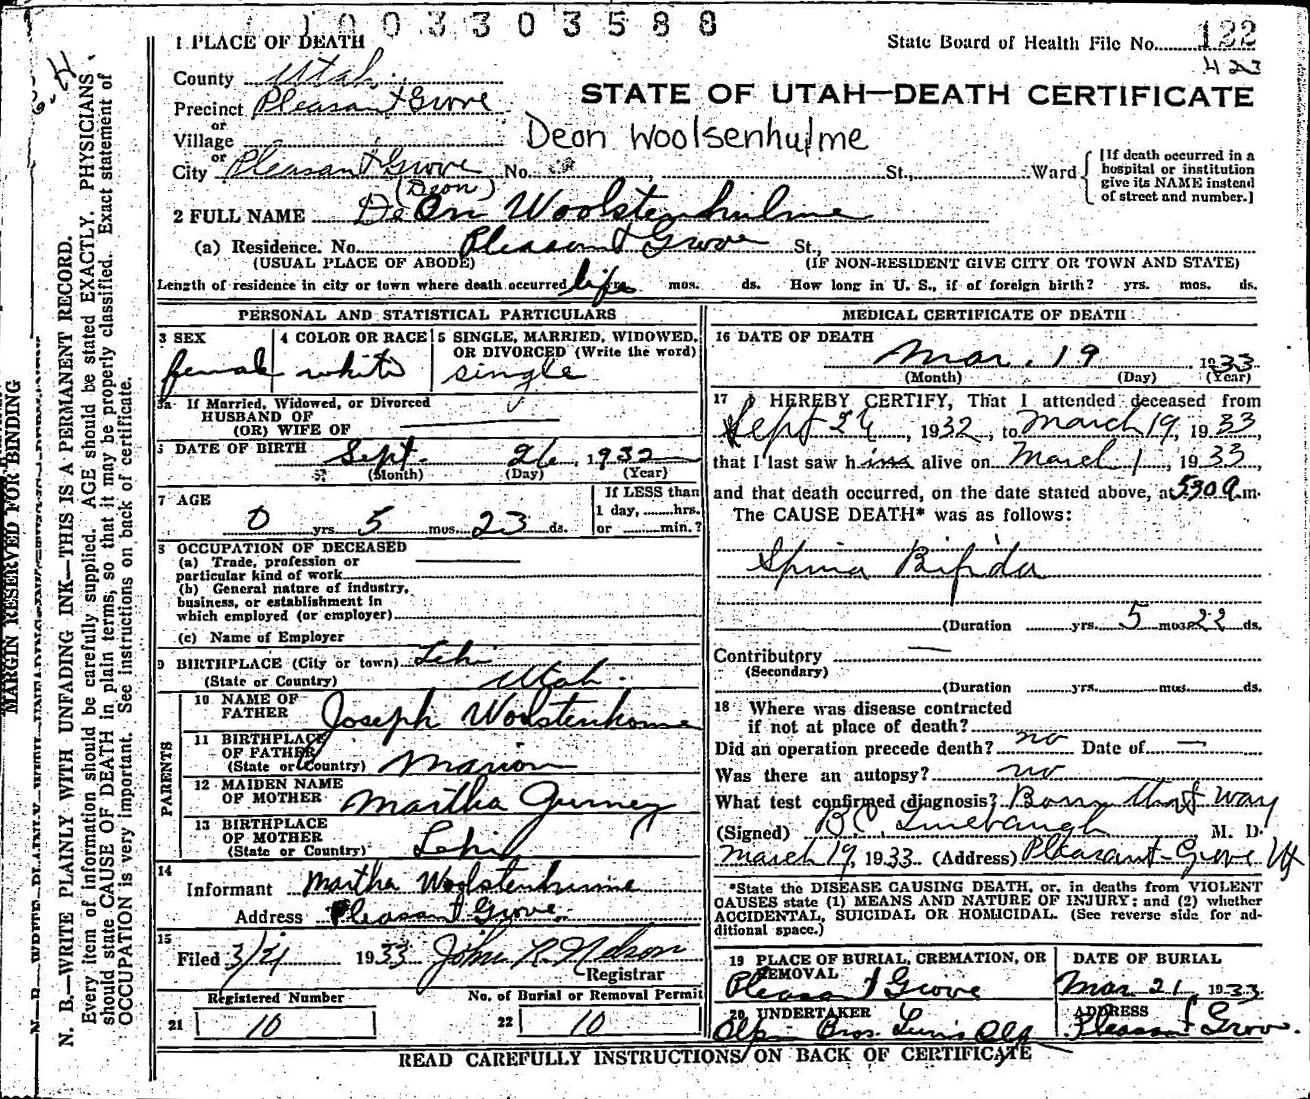 1003303588
1 PLACE OF DEATH
State Board of Health File No. 122
423
County Utah
STATE OF UTAH—DEATH CERTIFICATE
Precinct Pleasant Grove
or
Village
Deon Woolsenhulme
or
City Pleasant Grove No. St., Ward
[If death occurred in a
hospital or institution
give its NAME instead
of street and number.]
(Deon)
2 FULL NAME De On Woolstenhulme
(a) Residence. No. Pleasant Grove St.,
(USUAL PLACE OF ABODE) (IF NON-RESIDENT GIVE CITY OR TOWN AND STATE)
Length of residence in city or town where death occurred life yrs. mos. ds. How long in U. S., if of foreign birth? yrs. mos. ds.
PERSONAL AND STATISTICAL PARTICULARS
3 SEX
female
4 COLOR OR RACE
white
5 SINGLE, MARRIED, WIDOWED,
OR DIVORCED (Write the word)
single
5a If Married, Widowed, or Divorced
HUSBAND OF
(OR) WIFE OF
DATE OF BIRTH
Sept. 26, 1932
(Month) (Day) (Year)
7 AGE
0 yrs 5 mos. 23 ds.
If LESS than
1 day, hrs.
or min.?
8 OCCUPATION OF DECEASED
(a) Trade, profession or
particular kind of work
(b) General nature of industry,
business, or establishment in
which employed (or employer)
(c) Name of Employer
9 BIRTHPLACE (City or town) Lehi
(State or Country) Utah.
PARENTS
10 NAME OF
FATHER Joseph Woolstenhome
11 BIRTHPLACE
OF FATHER
(State or Country) Marion
12 MAIDEN NAME
OF MOTHER Martha Gurney
13 BIRTHPLACE
OF MOTHER
(State or Country) Lehi
14
Informant Martha Woolstenhume
Address Pleasant Grove.
15
Filed 3/21 1933 John R. Nelson
Registrar
Registered Number
21 10
No. of Burial or Removal Permit
22 10
MEDICAL CERTIFICATE OF DEATH
16 DATE OF DEATH
Mar. 19 1933
(Month) (Day) (Year)
17 I HEREBY CERTIFY, That I attended deceased from
Sept 26, 1932, to March 19, 1933,
that I last saw him alive on March 1, 1933,
and that death occurred, on the date stated above, at 5:30 a.m.
The CAUSE DEATH* was as follows:
Spina Bifida
(Duration yrs. 5 mos. 22 ds.
Contributory
(Secondary)
(Duration yrs. mos. ds.
18 Where was disease contracted
if not at place of death?
Did an operation precede death? no Date of —
Was there an autopsy? no
What test confirmed diagnosis? Born that way
(Signed) BC Linebaugh M. D.
March 19, 1933 (Address) Pleasant Grove Ut
*State the DISEASE CAUSING DEATH, or, in deaths from VIOLENT
CAUSES state (1) MEANS AND NATURE OF INJURY; and (2) whether
ACCIDENTAL, SUICIDAL OR HOMICIDAL. (See reverse side for ad-
ditional space.)
19 PLACE OF BURIAL, CREMATION, OR
REMOVAL
Pleasant Grove
DATE OF BURIAL
Mar 21 1933
20 UNDERTAKER
Bros.
ADDRESS
Pleasant Grove.
READ CAREFULLY INSTRUCTIONS ON BACK OF CERTIFICATE
MARGIN RESERVED FOR BINDING
N. B.—WRITE PLAINLY WITH UNFADING INK—THIS IS A PERMANENT RECORD.
Every item of information should be carefully supplied. AGE should be stated EXACTLY. PHYSICIANS
should state CAUSE OF DEATH in plain terms, so that it may be properly classified. Exact statement of
OCCUPATION is very important. See instructions on back of certificate.